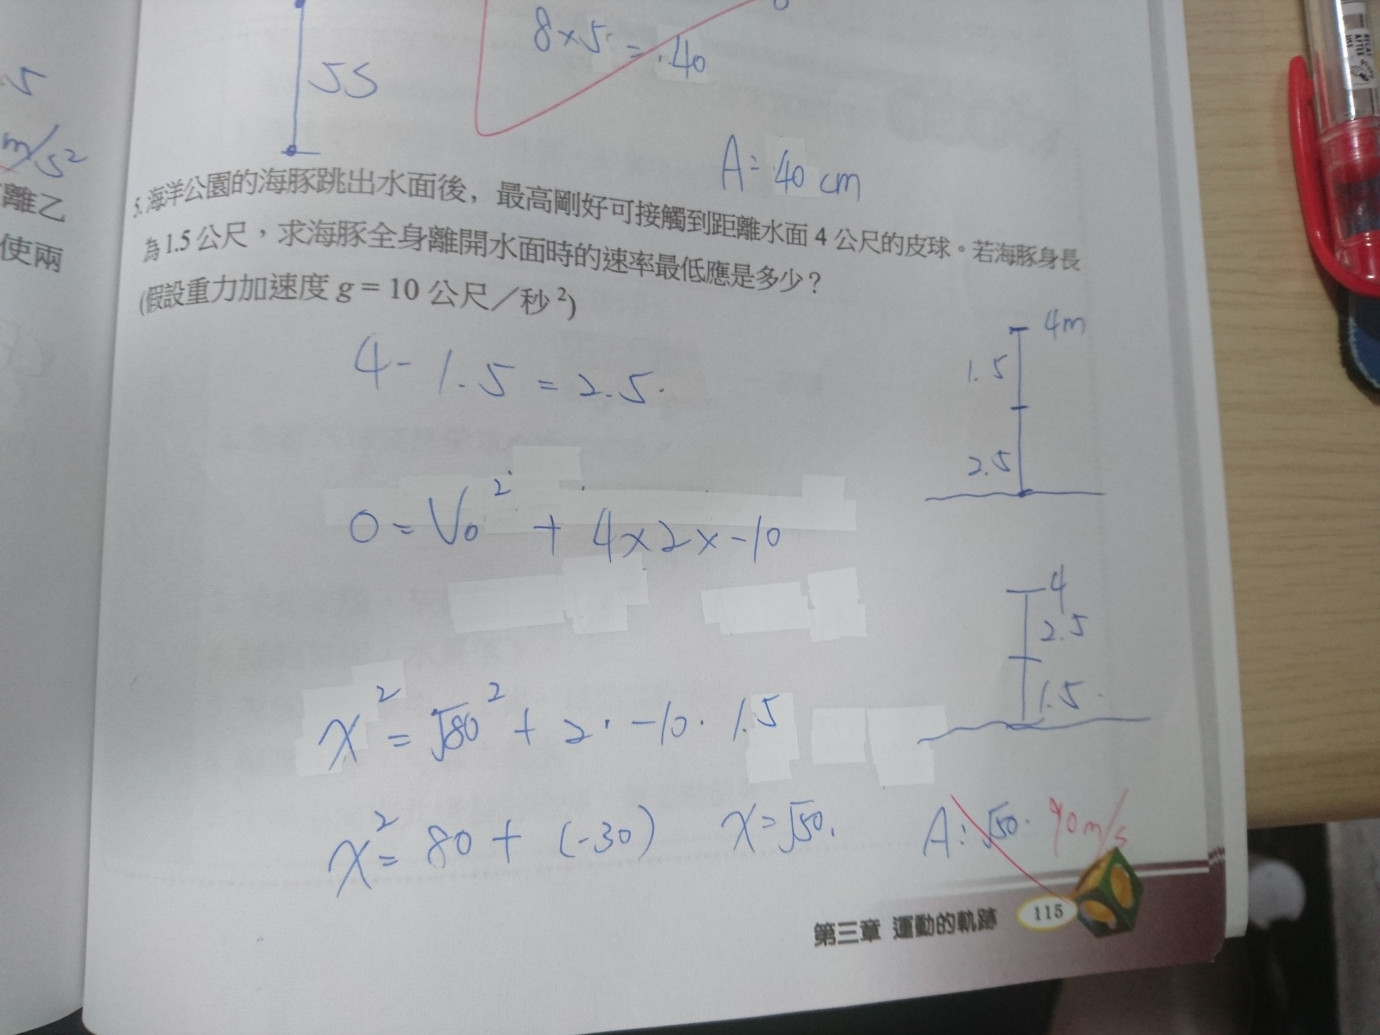 .5
m/s²
離乙
使兩
5S
8×5 = 40
A = 40 cm
5. 海洋公園的海豚跳出水面後，最高剛好可接觸到距離水面 4 公尺的皮球。若海豚身長
為 1.5 公尺，求海豚全身離開水面時的速率最低應是多少？
(假設重力加速度 g = 10 公尺／秒²)
4 - 1.5 = 2.5
4m
1.5
2.5
0 = V₀² + 4×2×-10
4
2.5
1.5
x² = √80² + 2·-10·1.5
x² = 80 + (-30) x = √50
A: √50 m/s
第三章 運動的軌跡 115